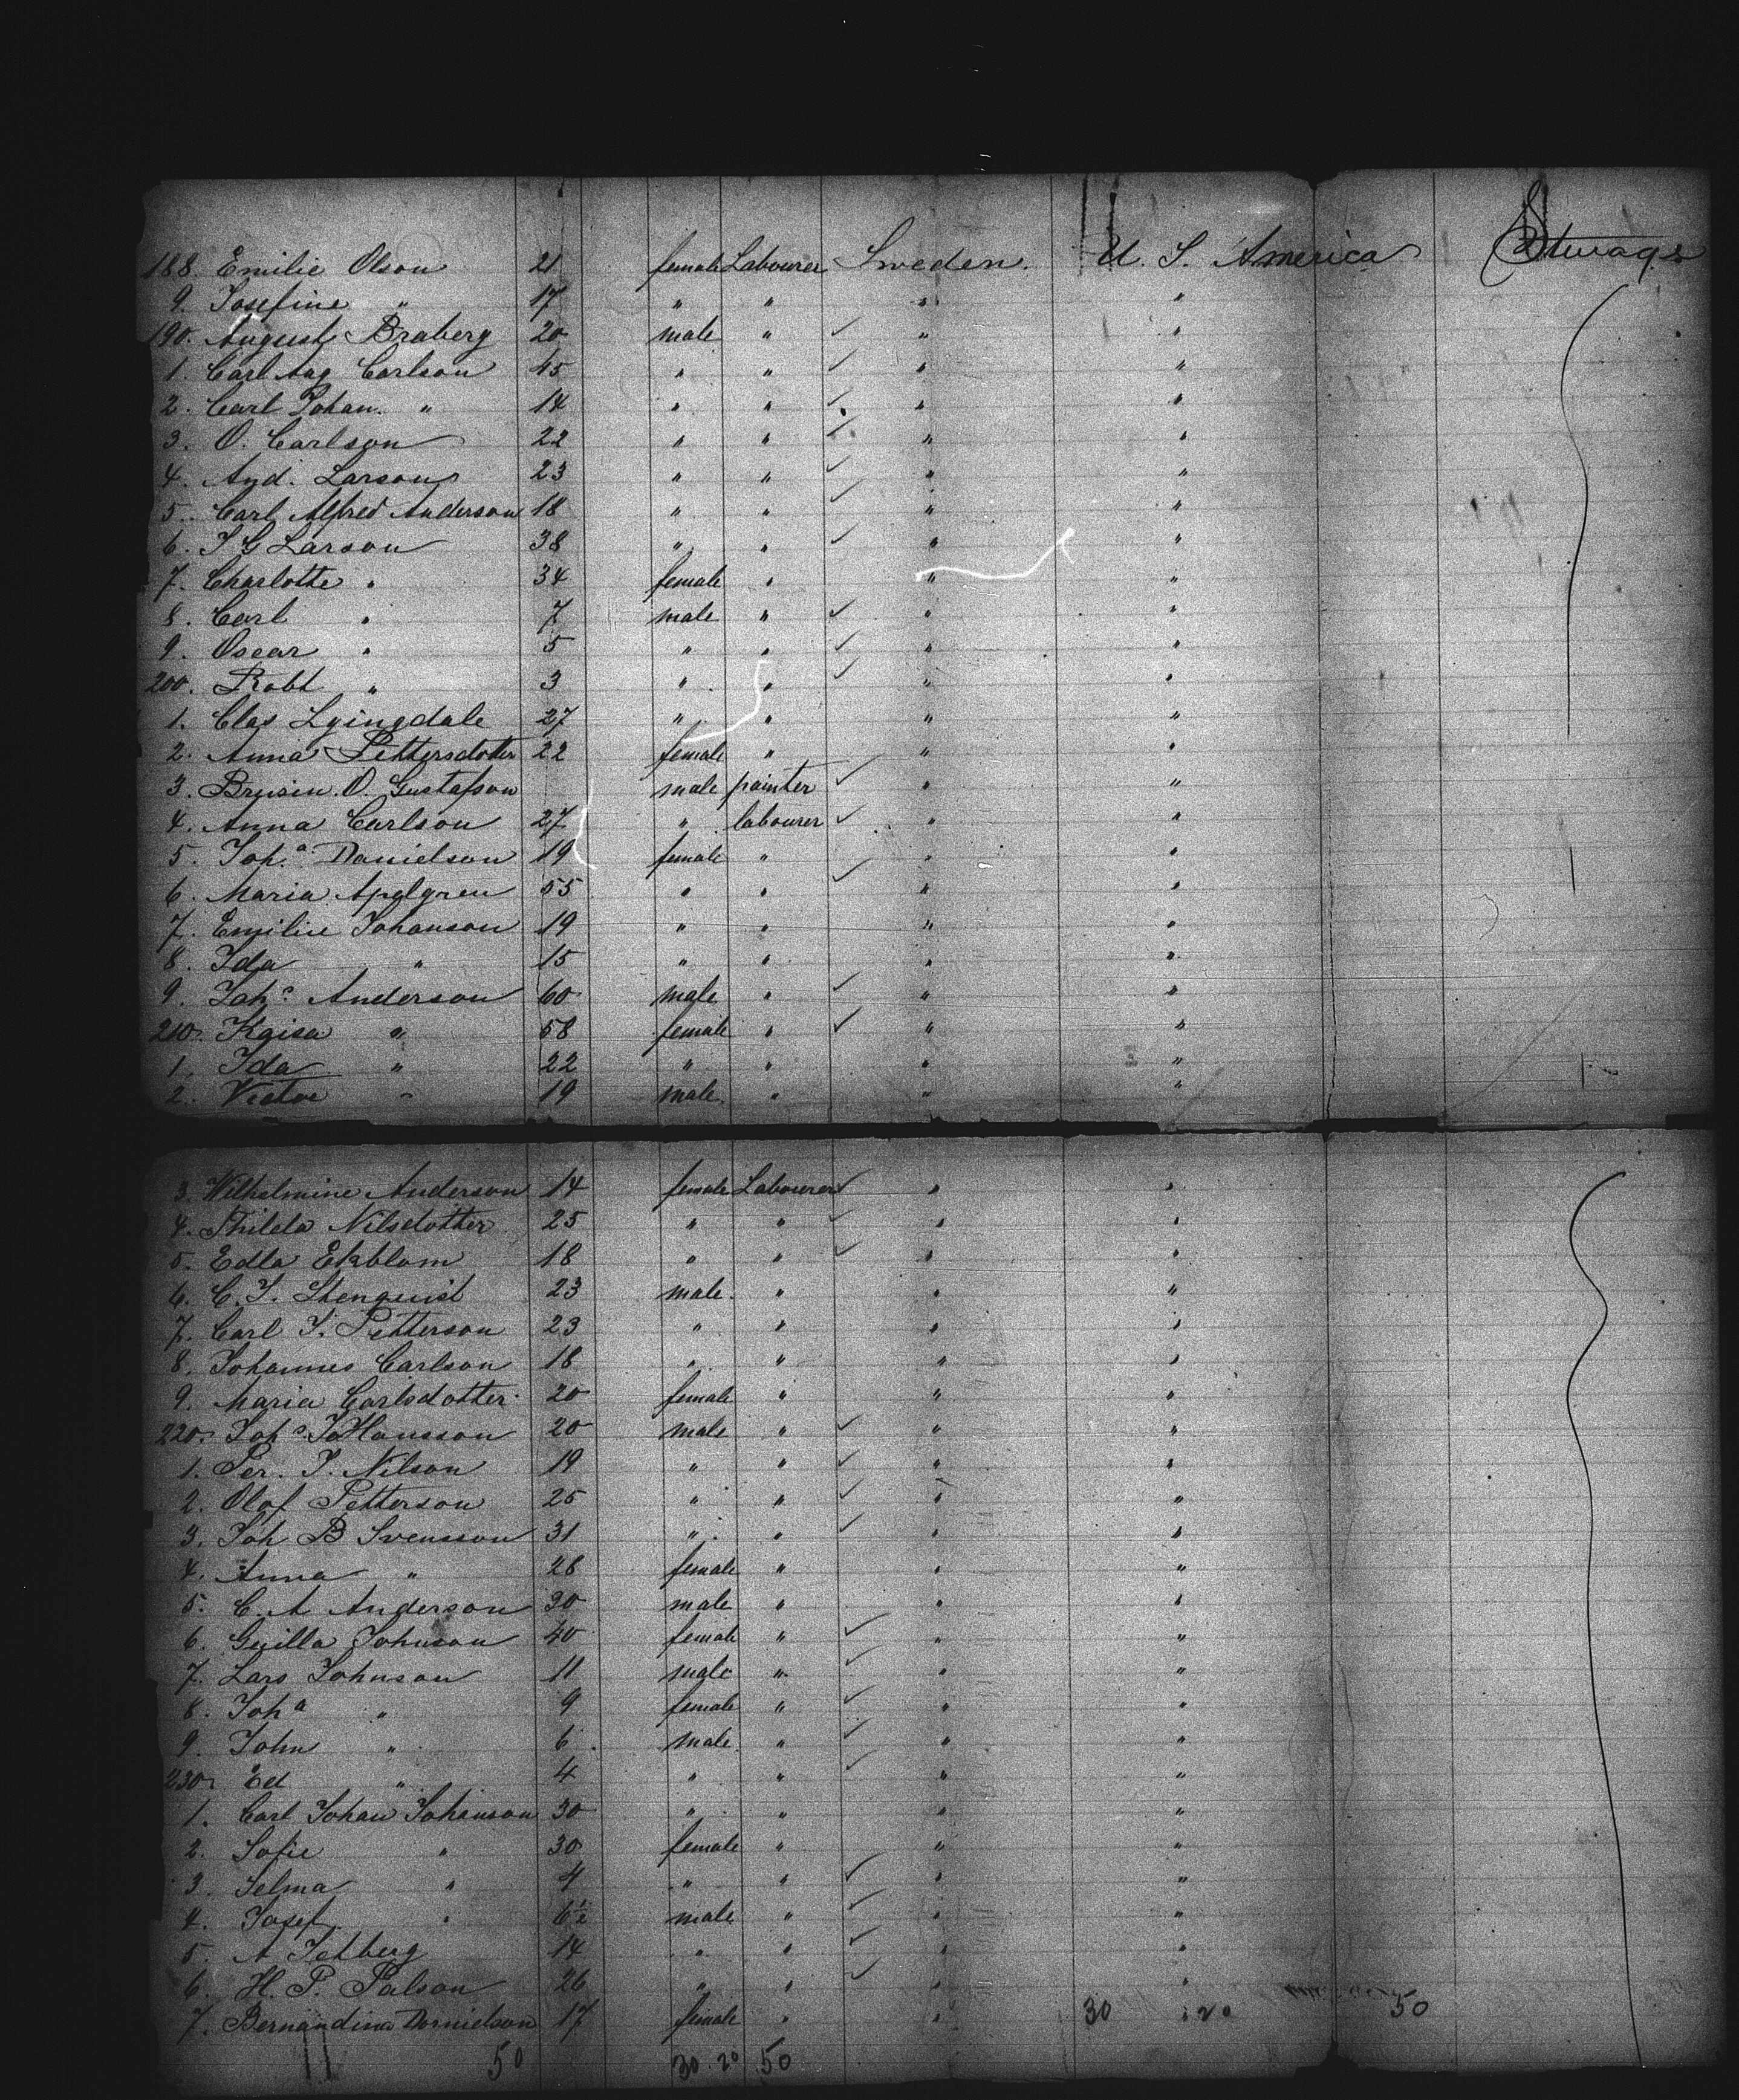 188. Emilie Olson 21 female Labourer Sweden. U. S. America Steerage
9. Josefine " 17 " " " "
190. August Braberg 20 male " ✓ " "
1. Carl Aug Carlson 45 " " ✓ " "
2. Carl Johan. " 14 " " ✓ " "
3. O. Carlson 22 " " ✓ " "
4. And. Larson 23 " " ✓ " "
5. Carl Alfred Anderson 18 " " ✓ " "
6. J G Larson 38 " " ✓ " "
7. Charlotte " 34 female " " "
8. Carl " 7 male " ✓ " "
9. Oscar " 5 " " ✓ " "
200. Robt " 3 " " ✓ " "
1. Clas 27 " " " "
2. Anna Pettersdotter 22 female " " "
3. O. Gustafson male painter ✓ " "
4. Anna Carlson 27 " labourer ✓ " "
5. Joh.a Danielson 19 female " " "
6. Maria Apelgren 55 " " ✓ " "
7. Emilie Johanson 19 " " " "
8. Ida " 15 " " " "
9. Joh.s Anderson 60 male " ✓ " "
210. Kaisa " 58 female " ✓ " "
1. Ida " 22 " " " "
2. Victor " 19 male. " " "
3. Wilhelmine Anderson 14 female Labourer ✓ " "
4. Thilda Nilsdotter 25 " " ✓ " "
5. Edla Ekblom 18 " " ✓ " "
6. C. J. Stenquist 23 male. " " "
7. Carl J. Petterson 23 " " " "
8. Johannes Carlson 18 " " " "
9. Maria Carlsdotter 20 female " " "
220. Joh.s JoHansson 20 male " ✓ " "
1. Per. J. Nilson 19 " " ✓ " "
2. Olof Petterson 25 " " ✓ " "
3. Joh B Svensson 31 " " ✓ " "
4. Anna " 28 female " " "
5. C. A Anderson 30 male " " "
6. Johnson 40 female " ✓ " "
7. Lars Johnson 11 male " ✓ " "
8. Joh a " 9 female " ✓ " "
9. John " 6 male. " ✓ " "
230. Ed " 4 " " ✓ " "
1. Carl Johan Johanson 30 " " " "
2. Sofie " 30 female " " "
3. Selma " 4 " " ✓ " "
4. Josef " 6½ male " ✓ " "
5. A 14 " " ✓ " "
6. H. P. Palson 26 " " ✓ " "
7. Bernandina Danielson 17 female " " 30 20 50
50 30 20 50